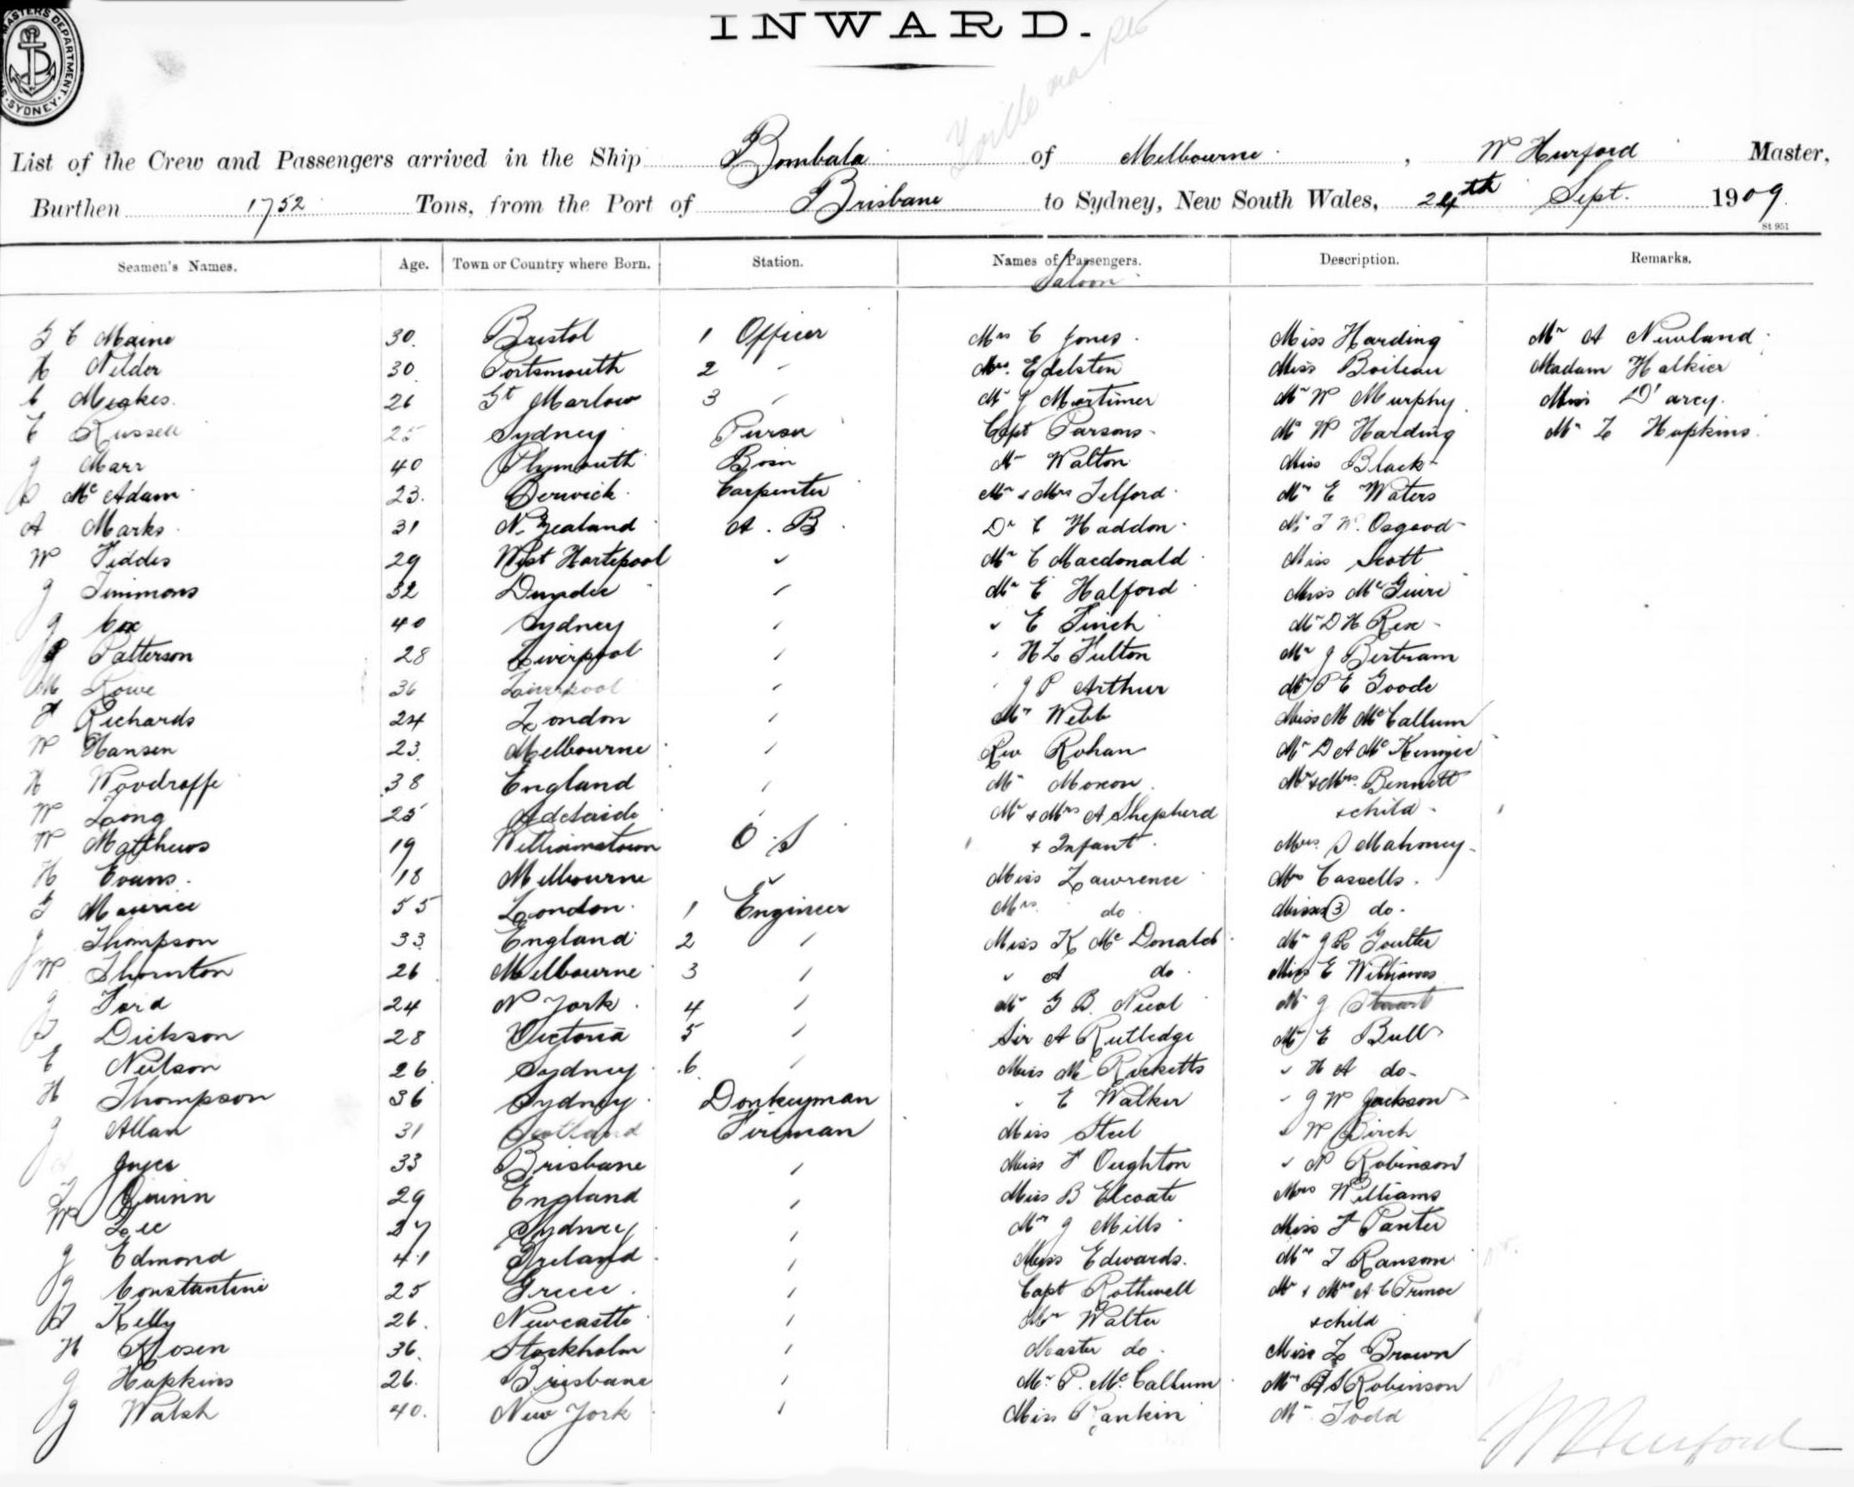 MASTERS DEPARTMENT
SYDNEY
INWARD.
List of the Crew and Passengers arrived in the Ship Bombala of Melbourne, W Hurford Master,
Burthen 1752 Tons, from the Port of Brisbane to Sydney, New South Wales, 24th Sept. 1909
St 951
Seamen's Names. Age. Town or Country where Born. Station. Names of Passengers. Description. Remarks.
Saloon
G C Maine 30. Bristol 1 Officer Mrs C Jones. Miss Harding Mr A Newland
H Nelder 30 Portsmouth 2 Mrs. Edelsten Miss Boileau Madam Halkier
C Meakes. 26 Gt Marlow 3 Mr J Mortimer Mr W Murphy Miss D'arcy.
E Russell 25 Sydney Purser Capt Parsons Mr W Harding Mr L Hopkins
J Marr 40 Plymouth Bosn Mr Walton Miss Black
D McAdam 23. Berwick Carpenter Mr & Mrs Telford Mr E Waters
A Marks 31 N. Zealand A. B Dr C Haddon Mr T W. Osgood
W Fiddes 29 West Hartlepool Mr C Macdonald Miss Scott
J Timmons 32 Dundee Mr E Halford Miss McGuire
J Cox 40 Sydney E Finch Mr D H Rex
Patterson 28 Liverpool H L Fulton Mr J Bertram
M Rowe 36 Liverpool J P Arthur Mr P E Goode
F Richards 24 London Mr Webb Miss M McCallum
W Hansen 23 Melbourne Rev Rohan Mr D A McKenzie
H Woodroffe 38 England Mr Moxon Mr & Mrs Bennett
W Long 25 Adelaide Mr & Mrs A Shepherd & child
W Matthews 19 Williamstown O. S & Infant Mrs. S Mahoney
H Evans. 18 Melbourne Miss Lawrence Mrs Cassells.
G Maurice 55 London. 1 Engineer Mrs do Misses 3 do.
J Thompson 33 England 2 Miss K McDonald Mr J R Goulter
W Thornton 26 Melbourne 3 A do Miss E Williams
J Ford 24 N York 4 Mr G B. Nicol Mr J Stewart
D Dickson 28 Victoria 5 Sir A Rutledge Mr E Bull
E Neilson 26 Sydney 6 Miss M Ricketts H A do
H Thompson 36 Sydney Donkeyman E Walker J W Jackson
J Allan 31 Scotland Fireman Miss Steel W Birch
Joyce 33 Brisbane Miss F Oughton N Robinson
Quinn 29 England Miss B Elcoate Mrs Williams
W Lee 27 Sydney Mr J Mills Miss F Panter
J Edmond 41 Ireland Miss Edwards. Mr T Ransom
J Constantine 25 Greece. Capt Rothwell Mr & Mrs A C Prince
D Kelly 26. Newcastle Mr Walter & child
H Rosen 36. Stockholm Master do. Miss L Brown
J Hopkins 26. Brisbane Mr P. McCallum Mr Robinson
J Walsh 40. New York Miss Rankin Mr Todd
W Hurford